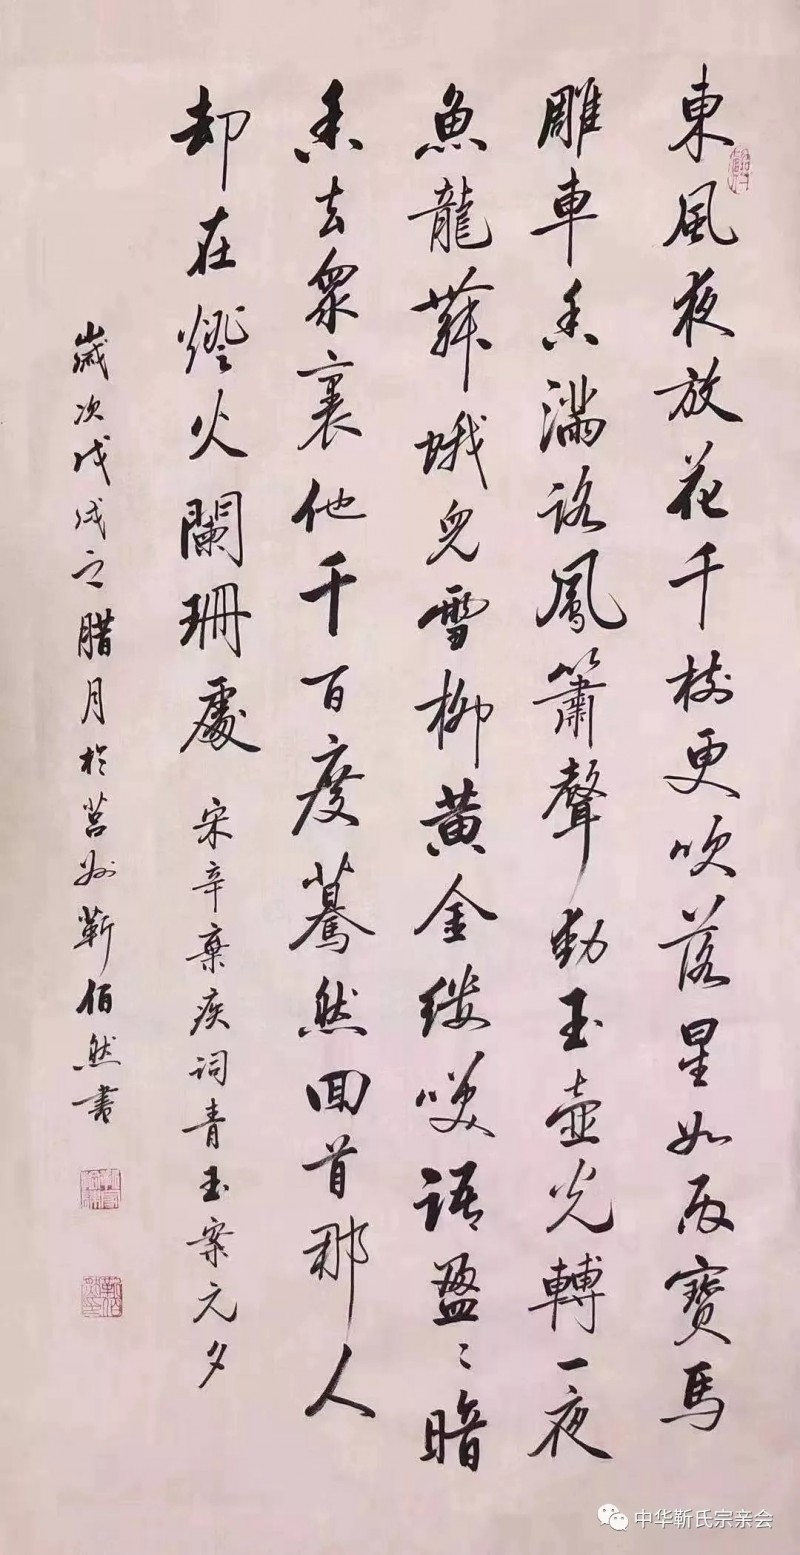 東風夜放花千樹更吹落星如雨寶馬
雕車香滿路鳳簫聲動玉壺光轉一夜
魚龍舞蛾兒雪柳黃金縷笑語盈〻暗
香去衆裏他千百度驀然回首那人
却在燈火闌珊處
宋辛棄疾詞青玉案元夕
歲次戊戌之腊月於莒州靳佰然書
中华靳氏宗亲会